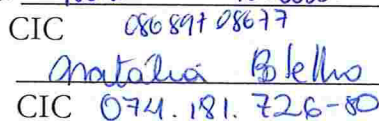 CIC 08689708677
Natália Botelho
CIC 074.181.726-80